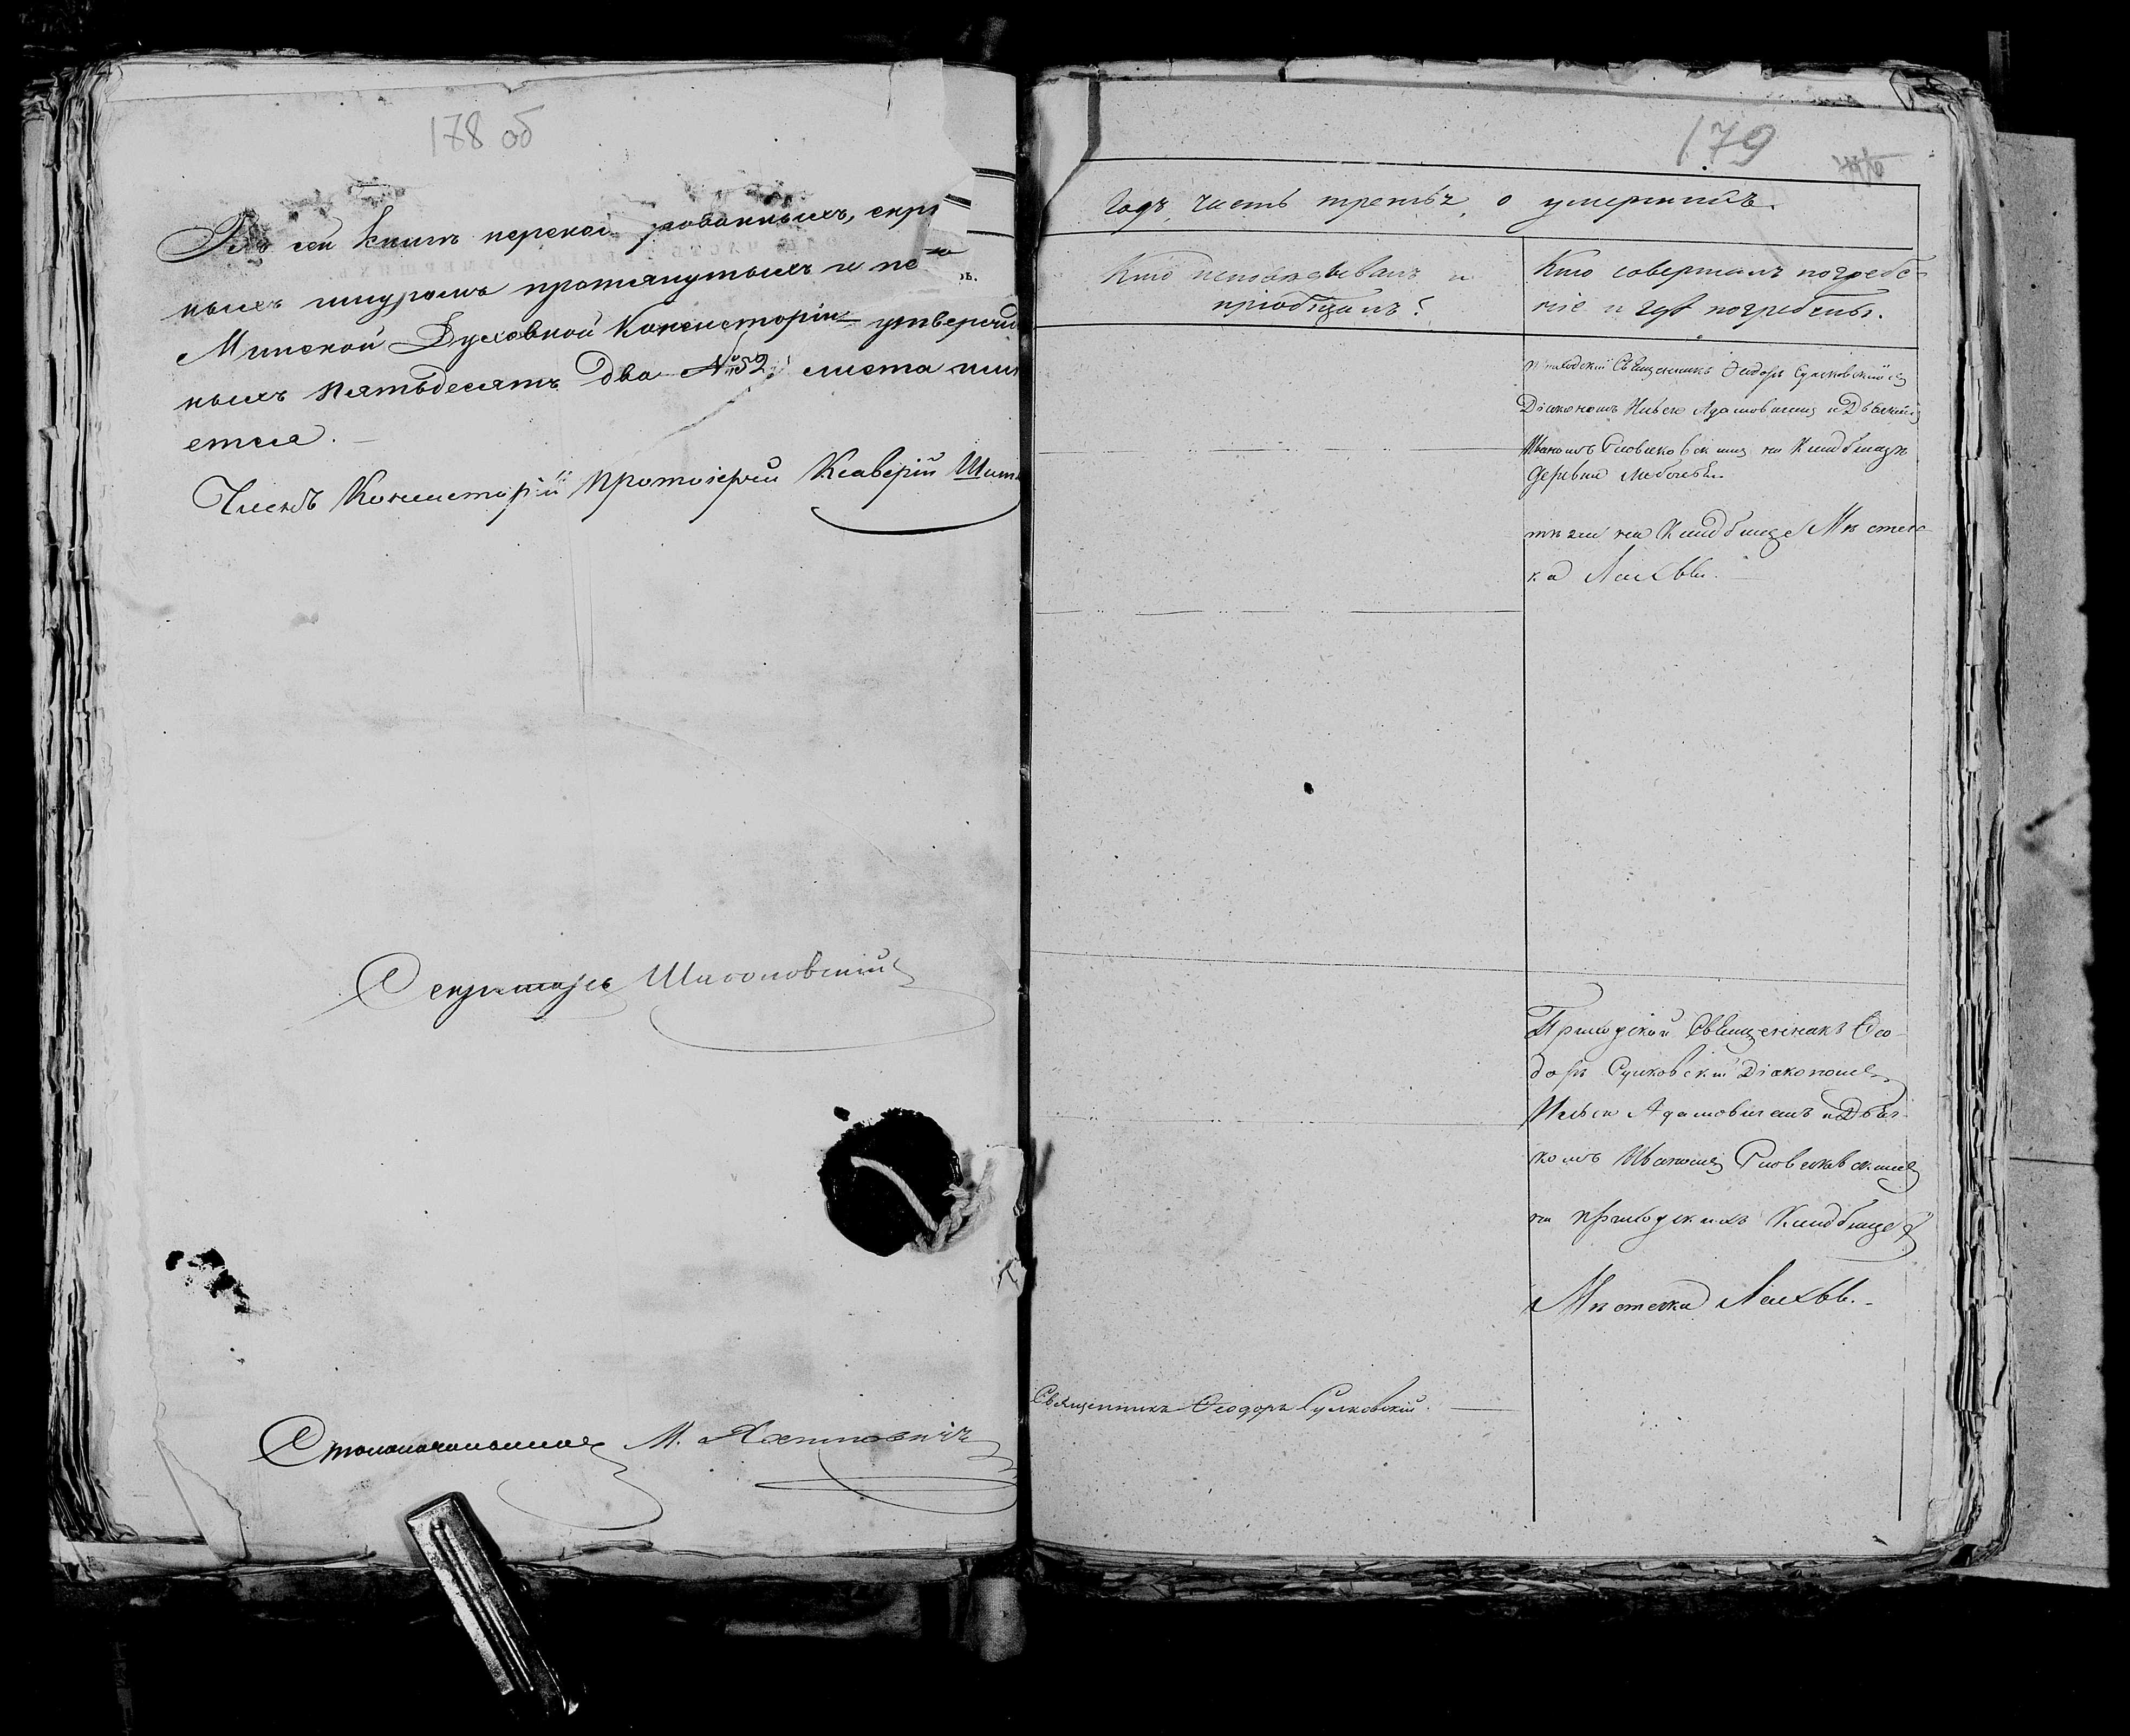 178 об
Въ сей книгѣ перено рованныхъ, скрѣ
ныхъ шнуромъ протянутыхъ и пе
Минской Духовной Консисторіи утвержд
ныхъ пятьдесятъ два №52, листа
ется. —
Членъ Консисторіи Протоіерей Ксаверій
Секретарь
Столоначальникъ М.
179
Годъ, Часть третья, о умершихъ.
Кто исповѣдывалъ и
пріобщалъ?
Кто совершалъ погребе-
ніе и гдѣ погребены.
Приходскій Священникъ Ѳеодоръ Сулковскій съ
Діакономъ Ильею Адамовичемъ и Дьячкомъ
Иваномъ на Кладбищѣ
деревни
тѣмъ на Кладбищѣ Мѣстеч-
ка Лахвы. —
Приходскій Священникъ Ѳео-
доръ Сулковскій Діакономъ
Ильею Адамовичемъ и Дьяч-
комъ Иваномъ
на приходскомъ Кладбищѣ
Мѣстечка Лахвы. -
Священникъ Ѳеодоръ Сулковскій. —